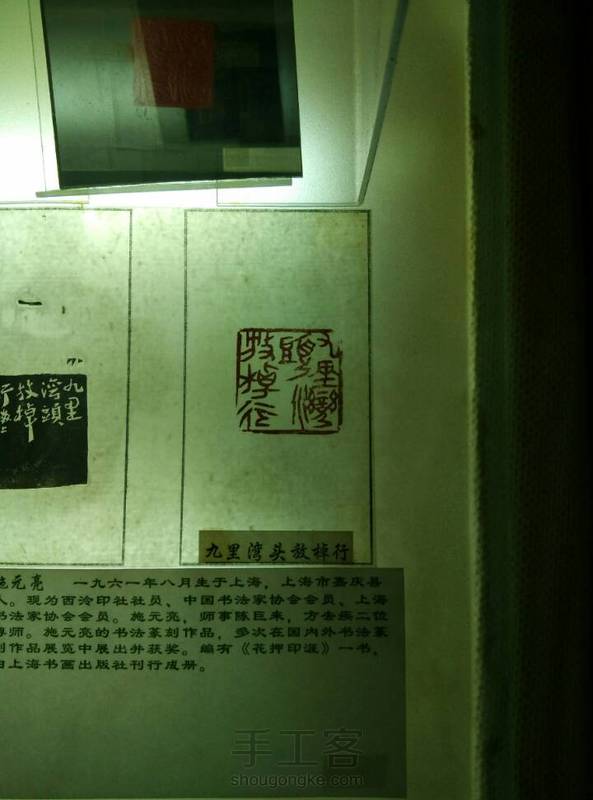 九里灣
頭
放棹行
九里
灣頭
放棹
行
九里湾头放棹行
施元亮 一九六一年八月生于上海，上海市嘉庆县
人。现为西泠印社社员、中国书法家协会会员、上海
书法家协会会员。施元亮，师事陈巨来，方去疾二位
尊师。施元亮的书法篆刻作品，多次在国内外书法篆
刻作品展览中展出并获奖。编有《花押印滙》一书，
由上海书画出版社刊行成册。
手工客
shougongke.com